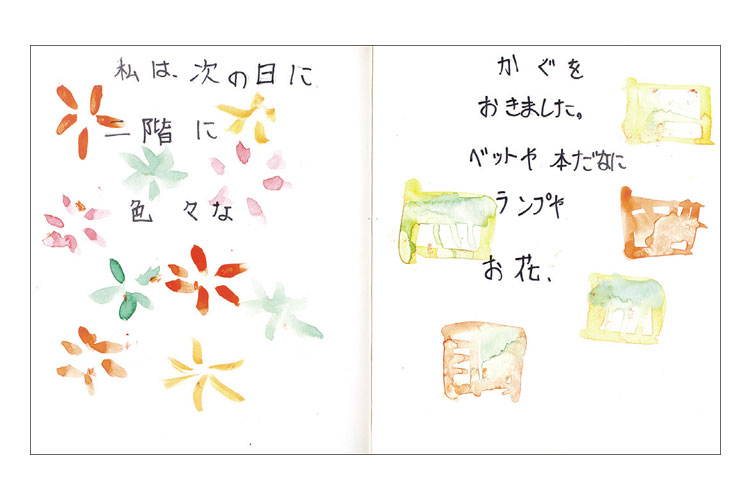 私は、次の日に
二階に
色々な
かぐを
おきました。
ベットや 本だなに
ランプや
お花、